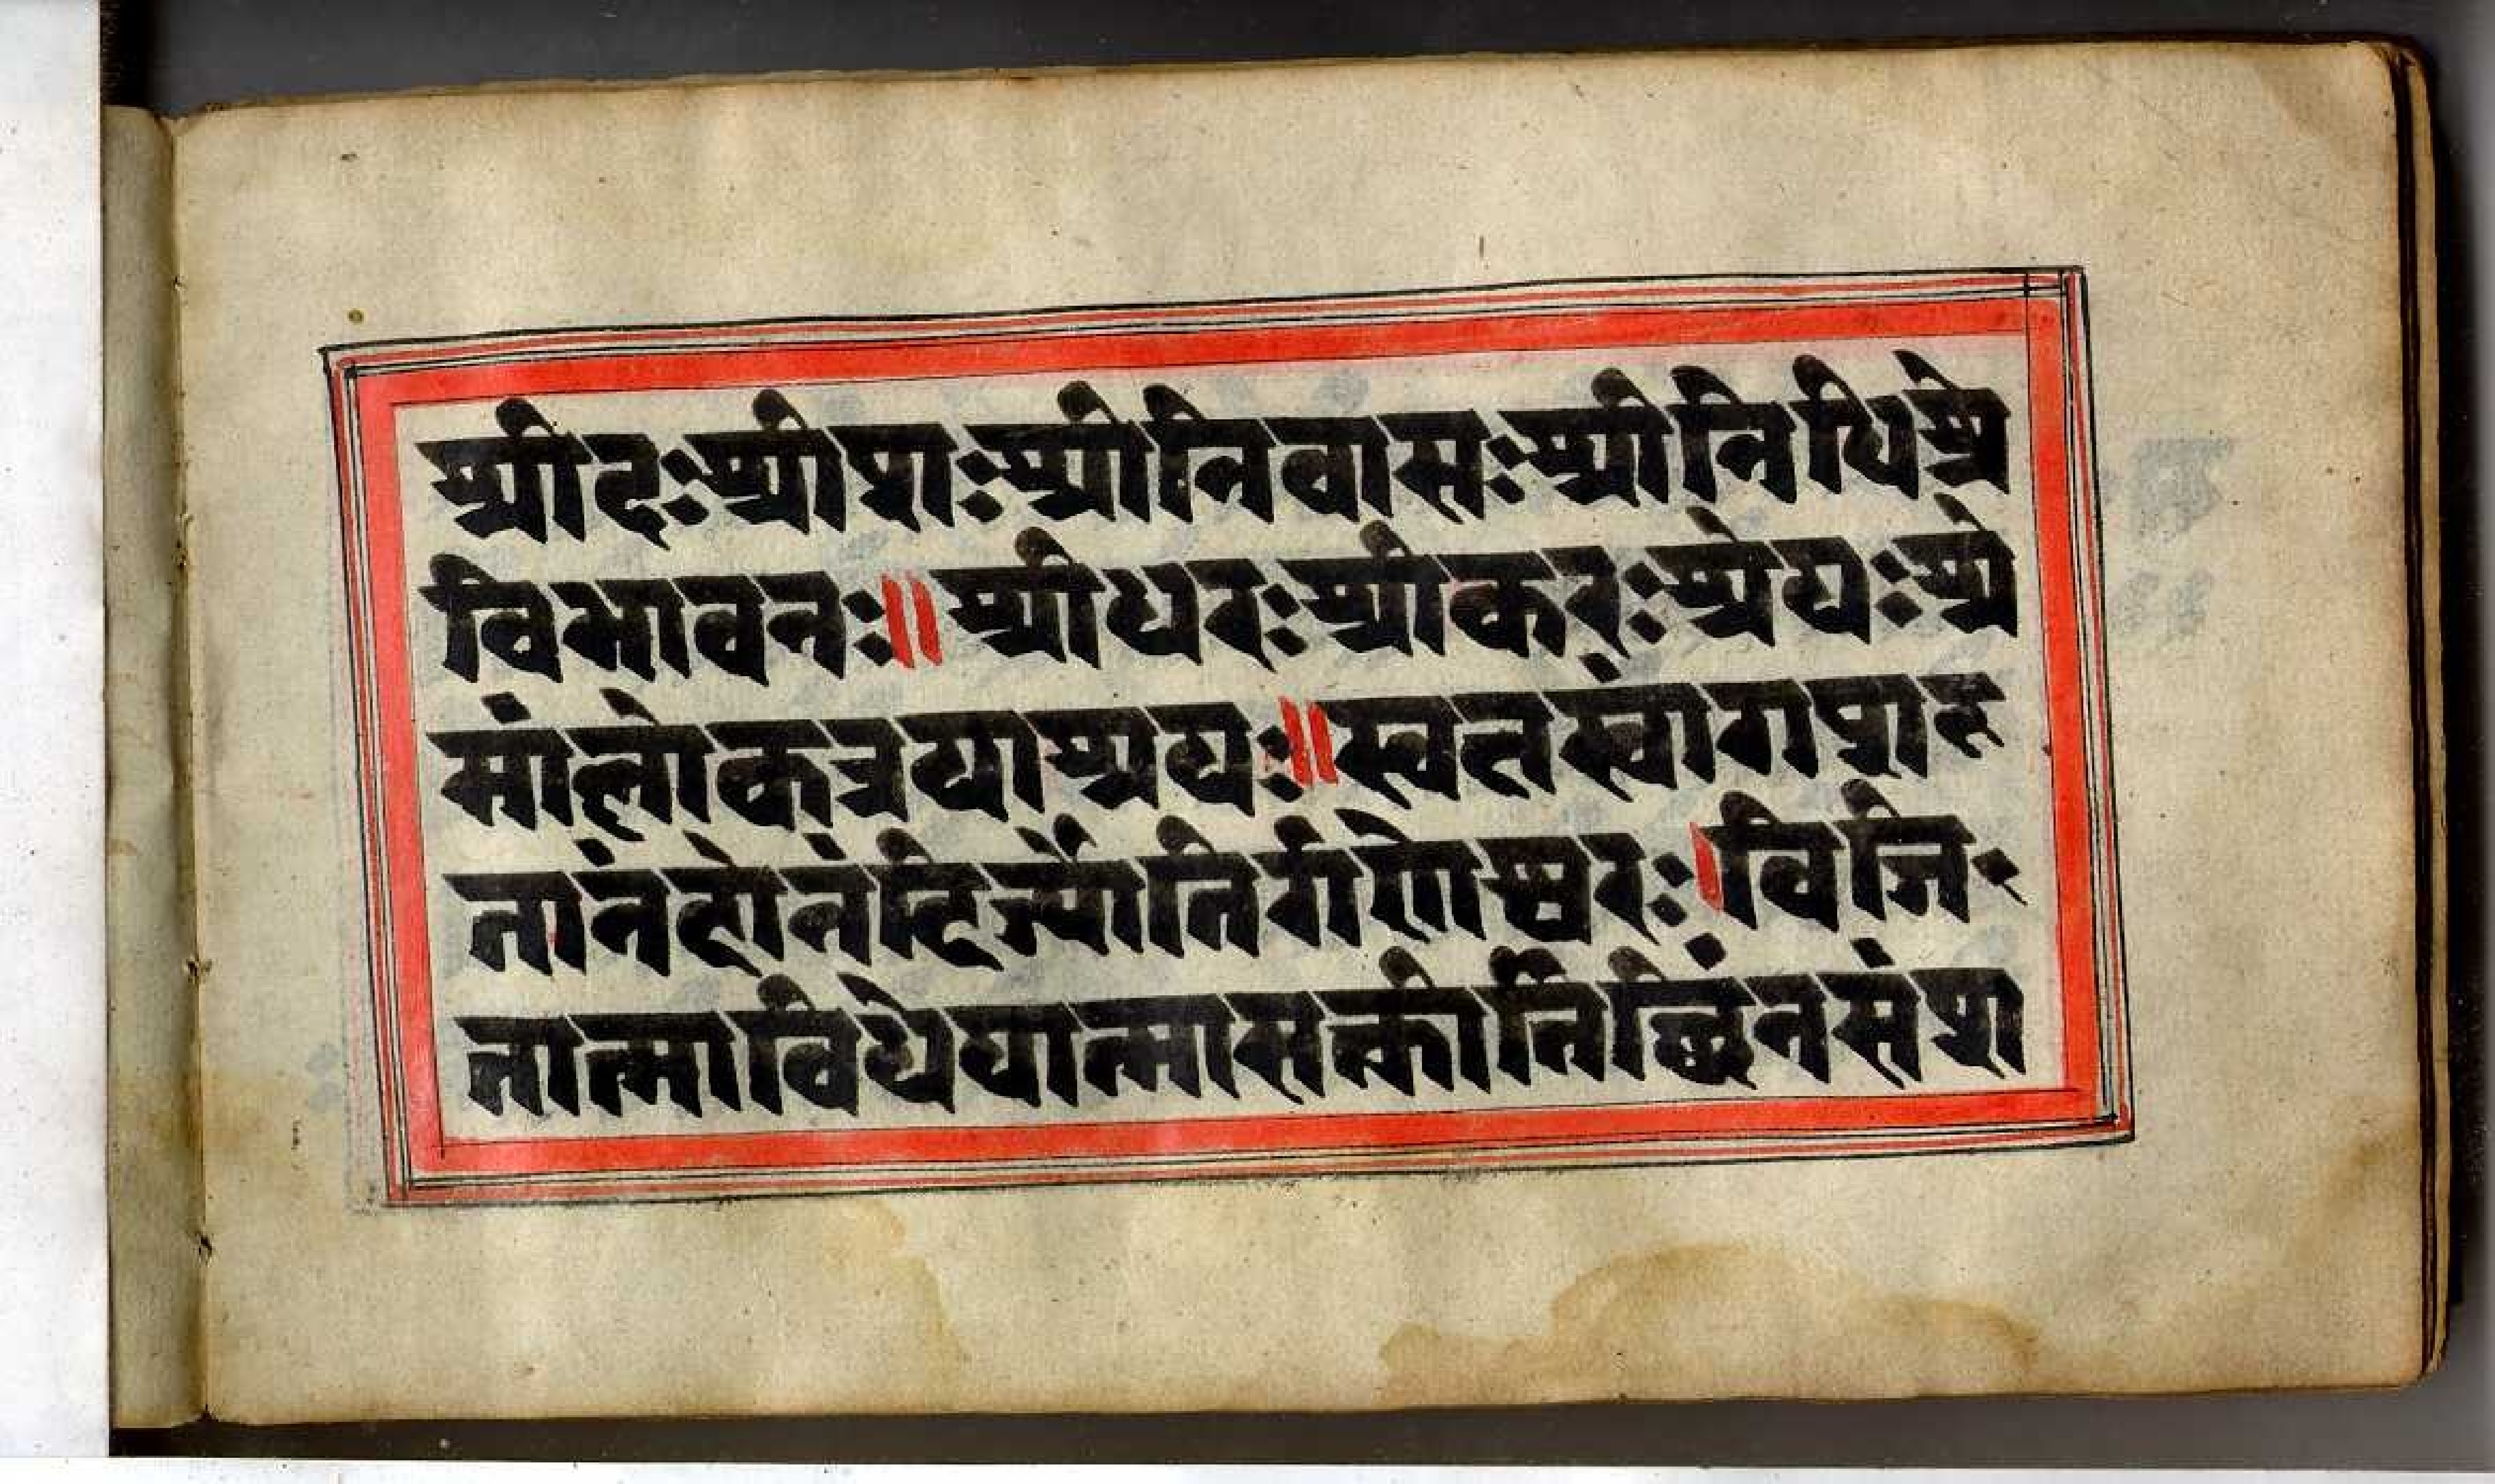 श्रीदःश्रीशःश्रीनिवासःश्रीनिधिश्रे
विभावनः॥श्रीधरःश्रीकरःश्रेयःश्रे
मांलोकत्रयाश्रयः॥
तानंदोनंदिर्ज्योतिर्गणेश्वरः।विजि
तात्माविधेयात्मासत्कीर्तिछिंनसंश